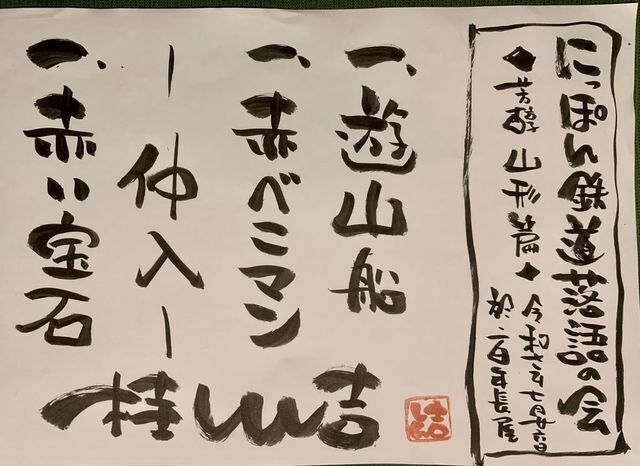 にっぽん鉄道落語の会
◆芳醇山形篇◆
令和
於・百年長屋
一、遊山船
一、赤べこマン
―仲入―
一、赤い宝石
桂しん吉